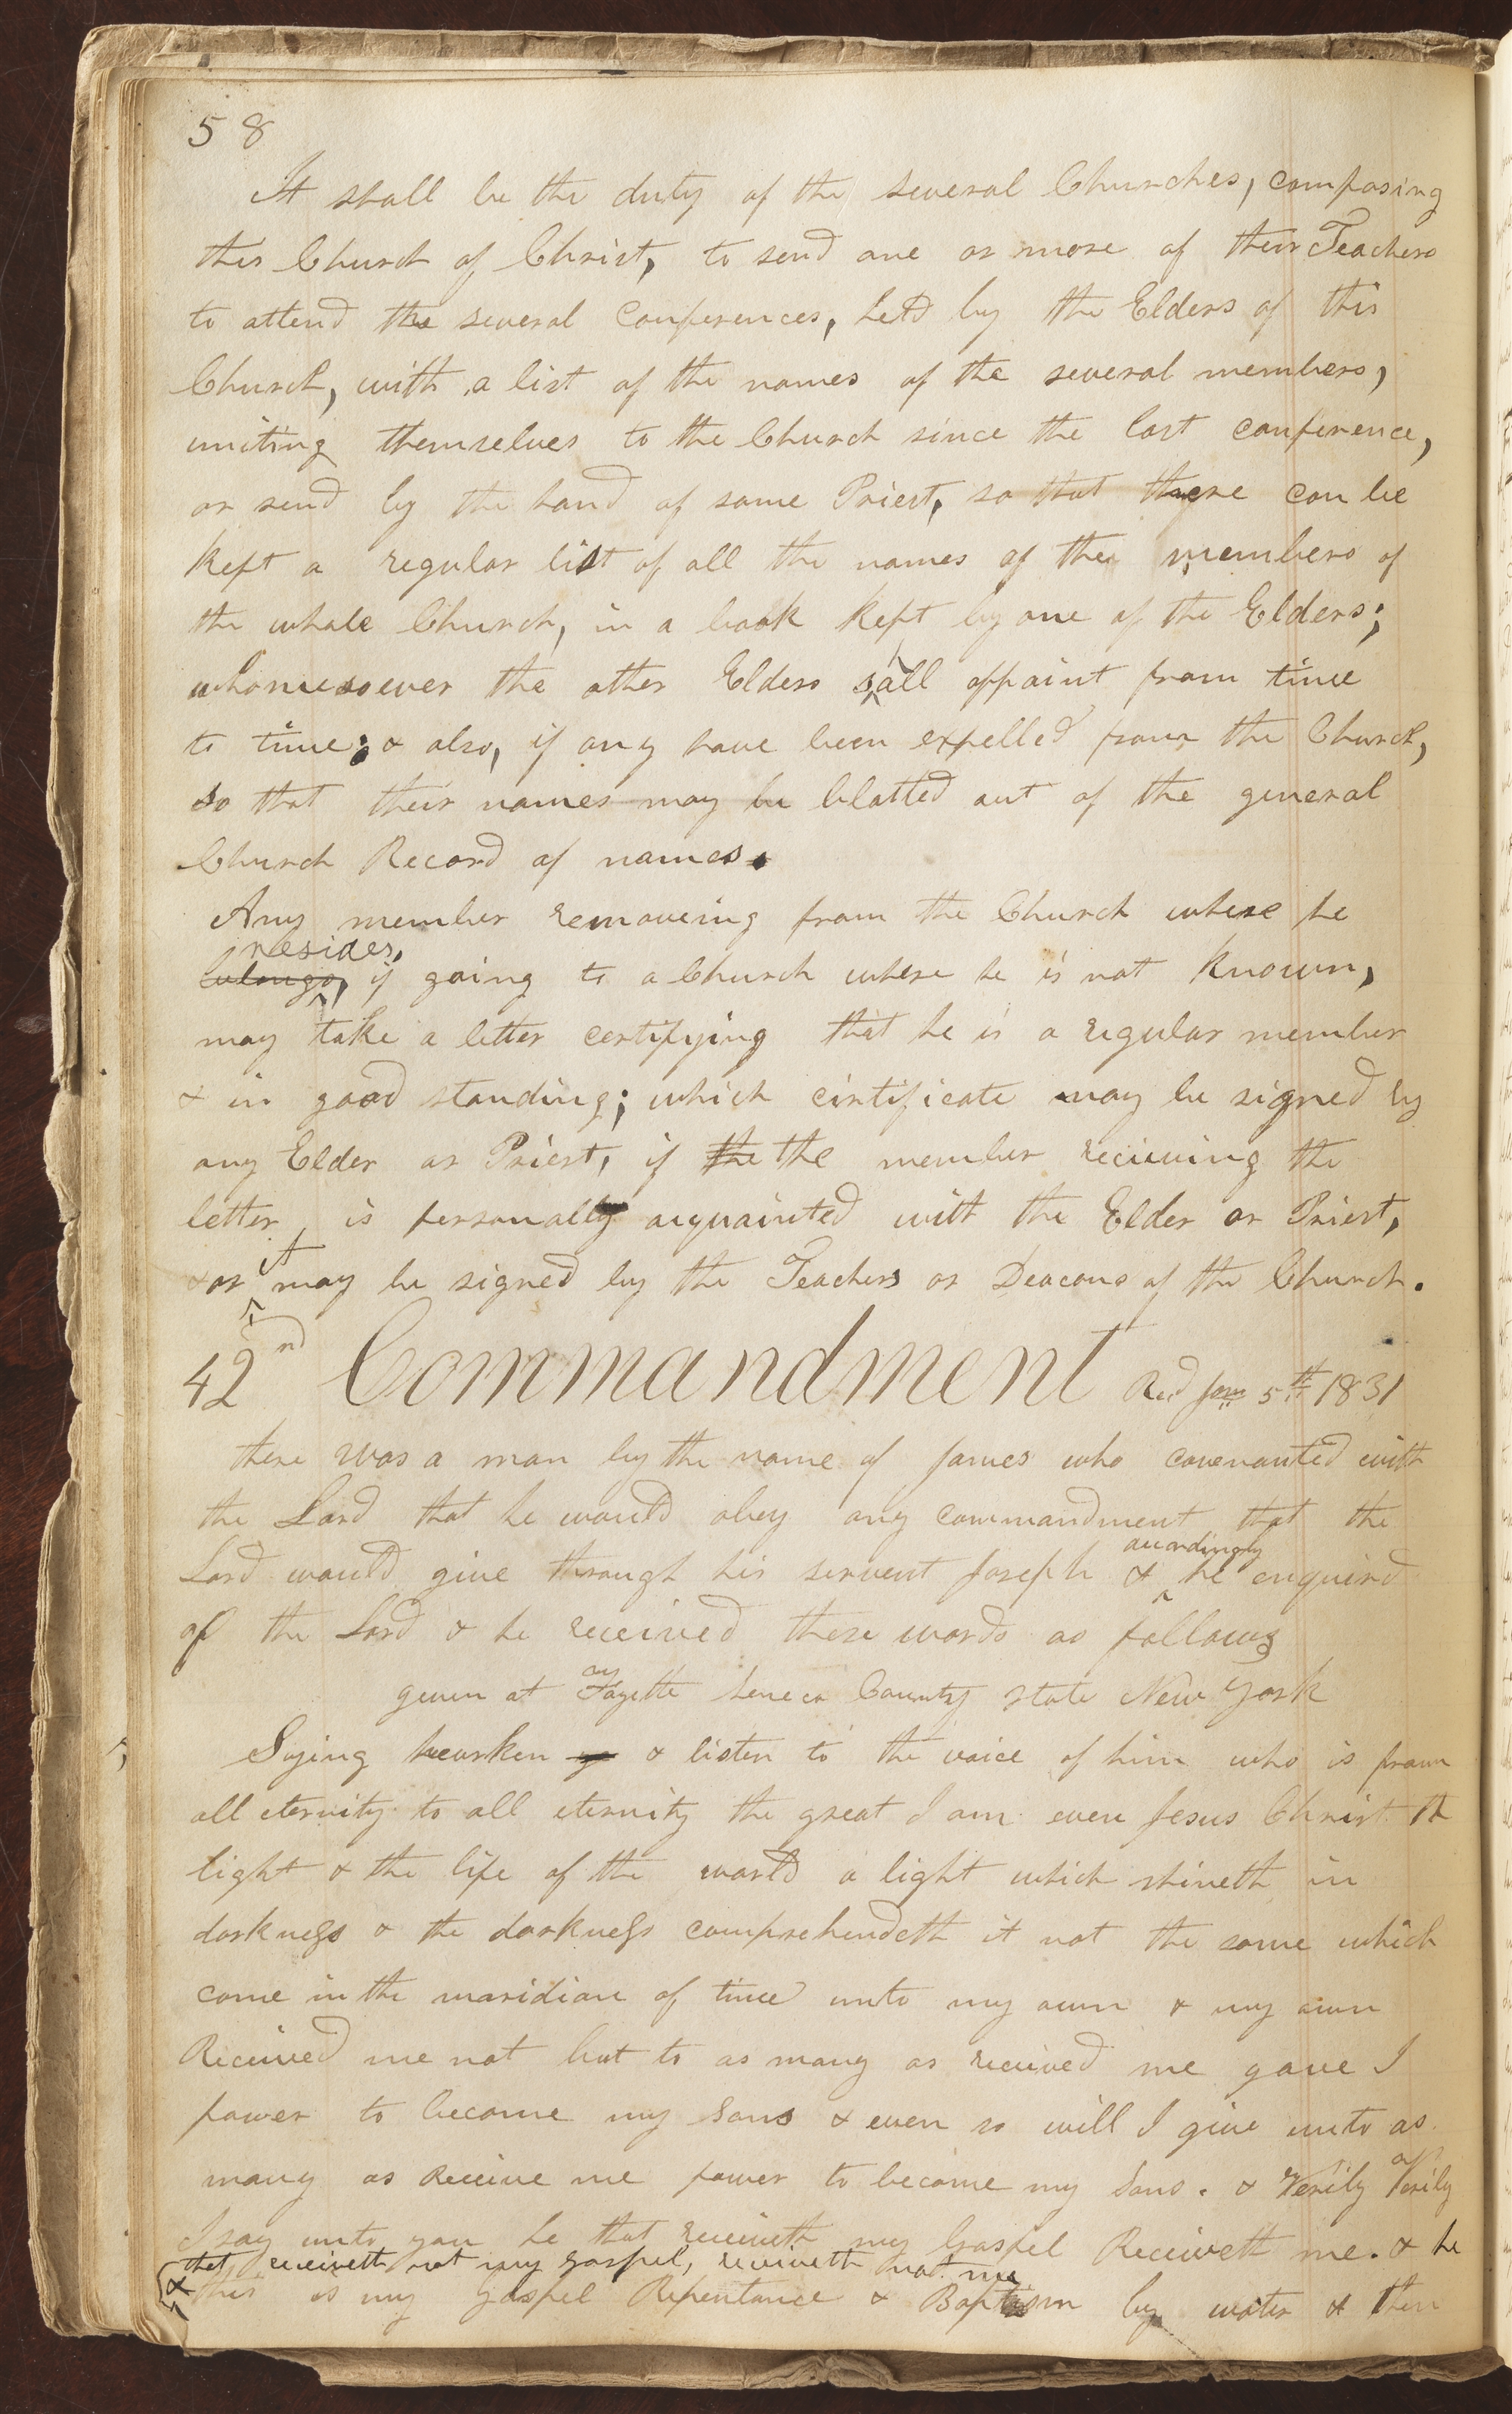 58
It shall be the duty of the several Churches, composing
this Church of Christ, to send one or more of their Teachers
to attend the several conferences, held by the Elders of this
Church, with a list of the names of the several members,
uniting themselves to the Church since the last conference,
or send by the hand of some Priest, so that there can be
kept a regular list of all the names of the members of
the whole Church, in a book kept by one of the Elders;
whomesoever the other Elders shall appoint from time
to time; & also, if any have been expelled from the Church,
so that their names may be blotted out of the general
Church Record of names.
Any member removeing from the Church where he
resides,
belongs, if going to a Church where he is not known,
may take a letter certifying that he is a regular member
& in good standing; which cirtificate may be signed by
any Elder or Priest, if the the member receiveing the
letter, is personally acquainted with the Elder or Priest,
& or it may be signed by the Teachers or Deacons of the Church.
42nd Commandment Recd Jany 5th 1831
there was a man by the name of James who covenanted with
the Lord that he would obey any commandment that the
Lord would give through his servent Joseph & accordingly he enquired
of the Lord & he received these words as follows
given at Fayette Seneca County state New York
Saying hearken ye & listen to the voice of him who is from
all eternity to all eternity the great I am even Jesus Christ the
light & the life of the world a light which shineth in
darkness & the darkness comprehendeth it not the same which
come in the maridian of time unto my own & my own
Received me not but to as many as received me gave I
power to become my Sons & even so will I give unto as
many as Receive me power to become my Sons. & Verily Verily
I say unto you he that receiveth my Gospel Receiveth me. & he
that receiveth not my gospel, receiveth not me
& this is my gospel Repentance & Baptism by water & then